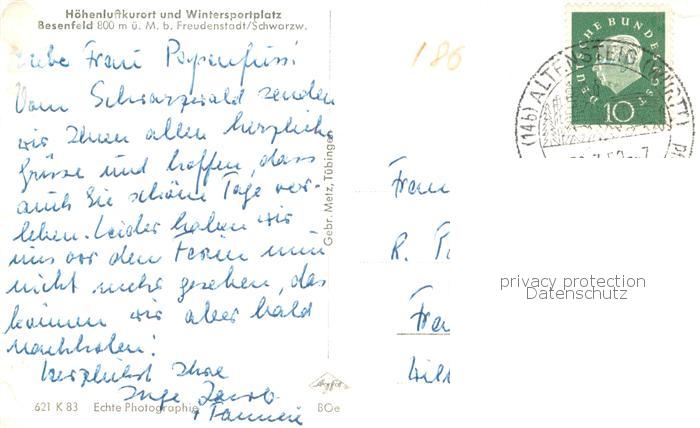 Höhenluftkurort und Wintersportplatz
Besenfeld 800 m ü. M. b. Freudenstadt/Schwarzw.
Liebe Frau Papenfuss!
Vom Schwarzwald senden
wir Ihnen allen herzliche
Grüsse und hoffen, dass
auch Sie schöne Tage ver-
leben. Leider haben wir
uns vor den Ferien nun
nicht mehr gesehen, das
können wir aber bald
nachholen!
Herzlichst Ihre
Inge Jacob
+ Familie
621 K 83 Echte Photographie
BOe
Gebr. Metz, Tübingen
186
DEUTSCHE BUNDESPOST
10
(14b) ALTENSTEIG (WÜRTT)
Frau
R.
Fra
privacy protection
Datenschutz